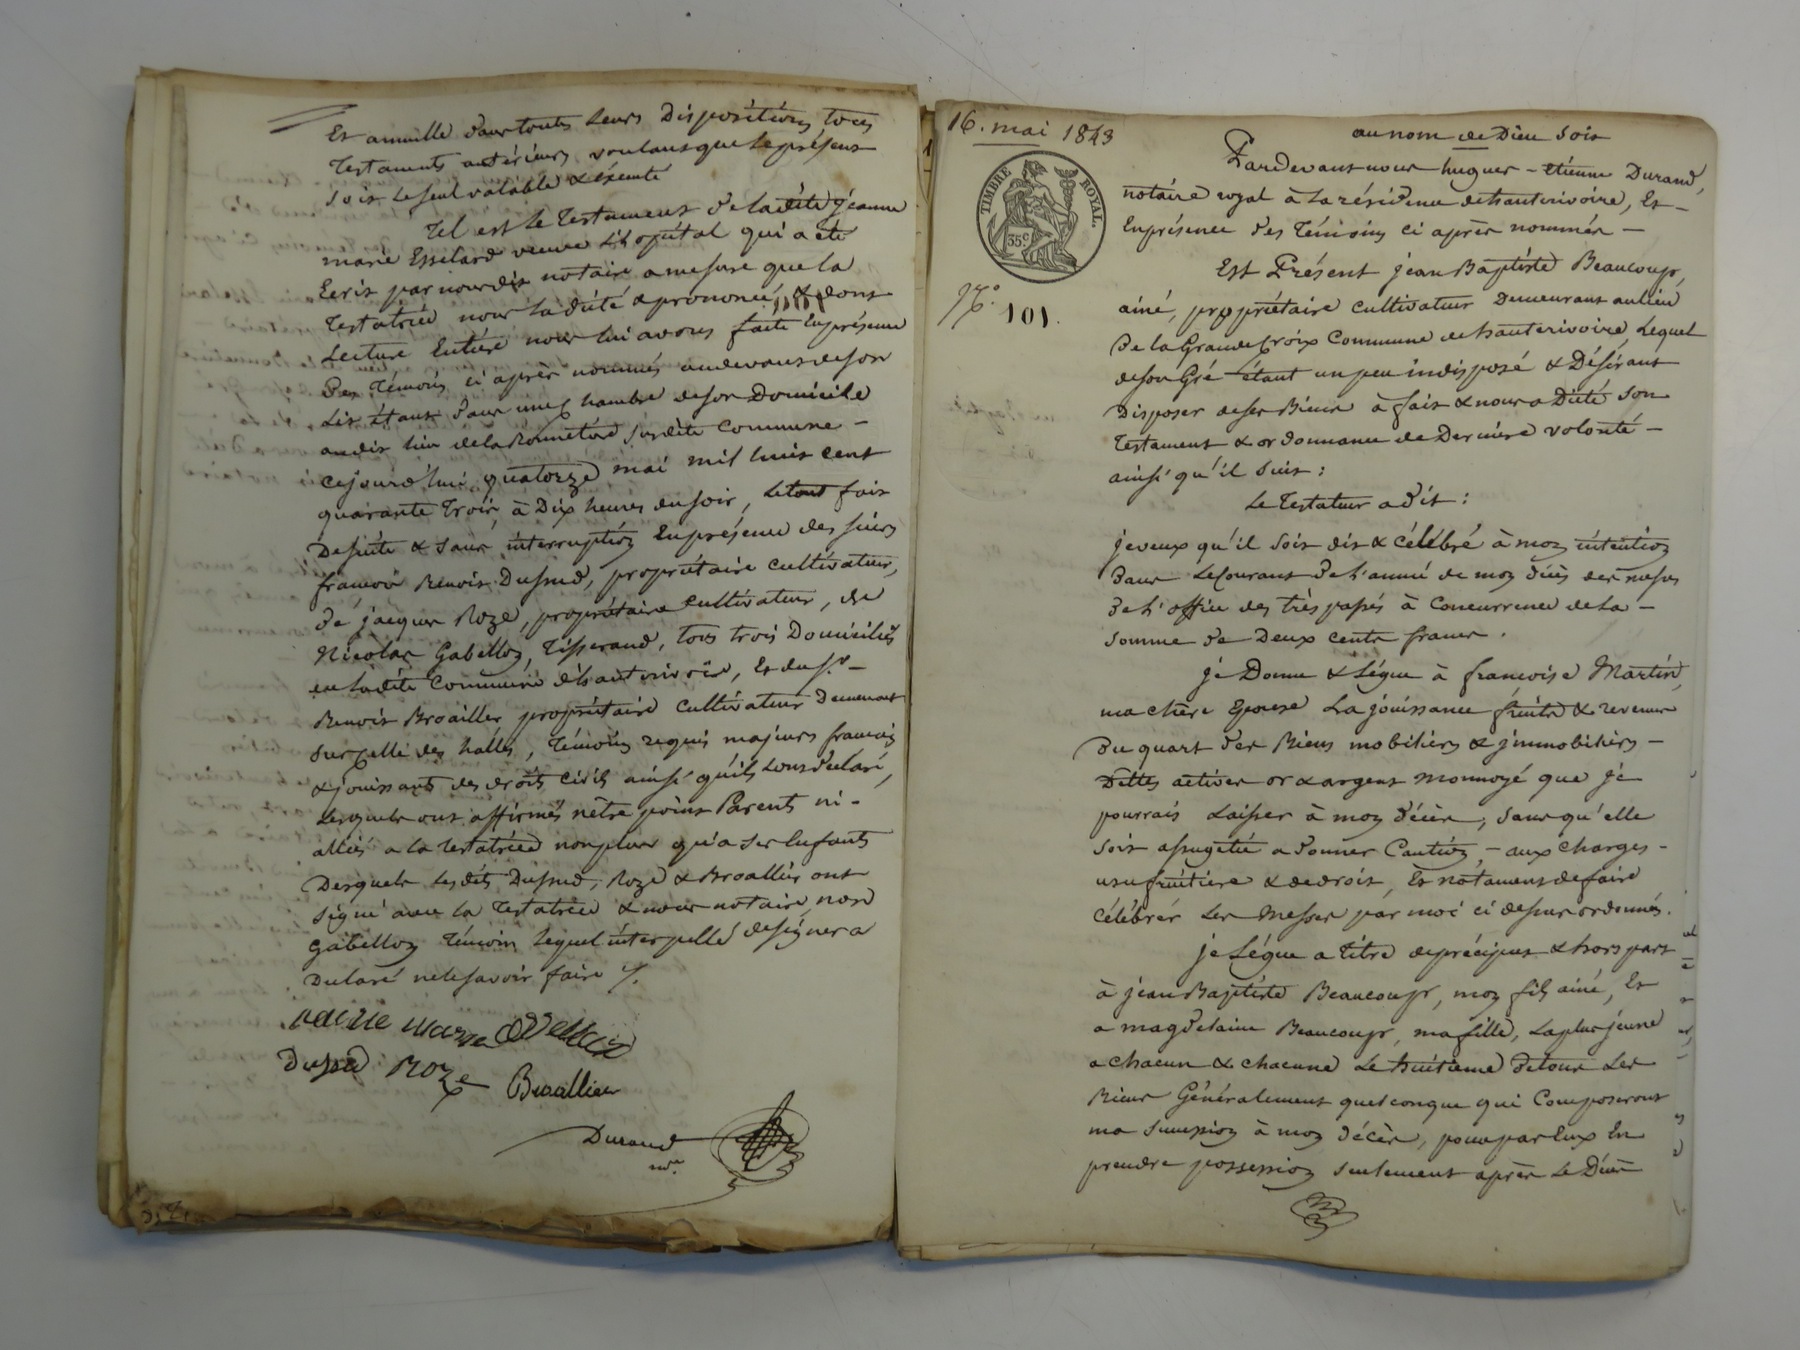 Et annulle dans toutes leurs Dispositions tous
testaments antérieurs voulant que le présent
Soit le seul valable & éxécuté
Tel est le testament de ladite jeanne
marie Esselard veuve L'hopital qui a été
Ecrit par nous dit notaire a mesure que la
Testatrice nous la dicté & prononcé, & dont
Lecture Entière nous lui avons faite En présence
Des témoins ci après nommés au devant de son
Lit étant dans une chambre de son Domicile
audit lieu de la susdite Commune -
Cejourd'hui quatorze mai mil huit cent
quarante trois, à Dix heures du soir, le tout fait
De suite & Sans interruption En présence des sieurs
françois Benoit Dussud, propriétaire cultivateur,
de jacques Roze, propriétaire cultivateur, de
Nicolas Gabellon, Tisserand, tous trois Domiciliés
en ladite Commune d'hauterivoire, Et du Sr. -
Benoit Broallier propriétaire cultivateur demeurant
sur celle des halles, témoins requis majeurs français
& jouissants des droits civils ainsi qu'ils l'ont déclaré,
Lesquels ont affirmés n'être point Parents ni -
alliés a la testatrice non plus qu'a ses Enfants
Desquels lesdits Dussud, Roze & Broallier ont
signé avec la testatrice & nous notaire non
Gabellon témoin lequel interpellé de signer a
Déclaré ne le savoir faire
Dussud Roze Broallier
Durand
nre
16. mai 1843
TIMBRE ROYAL.
35c
No. 101.
au nom de Dieu soit
Pardevant nous hugues - etienne Durand,
notaire royal à la résidence dehauterivoire, Et -
En présence des témoins ci après nommés -
Est Présent jean Baptiste Beaucoup,
ainé, propriétaire cultivateur Demeurant au lieu
de la Grande Croix Commune dehauterivoire, Lequel
de son Gré étant un peu indisposé & Désirant
Disposer de ses Biens à fait & nous a Dicté son
Testament & ordonnance de Dernière volonté -
ainsi qu'il suit :
Le Testateur a dit :
je veux qu'il soit dit & célébré à mon intention
dans Le Courant de l'année de mon décès des messes
de l'office des trèspassés à Concurrence de la -
somme de Deux cents francs.
je Donne & Légue à francoise Martin,
ma chère Epouse La jouissance fruits & revenus
Du quart des Biens mobiliers & jmmobiliers -
Dettes actives or & argent monnoyé que je
pourrais Laisser à mon décès, sans qu'elle
soit assugetie a donner Caution, - aux charges -
usufruitière & de droit, Et notament de faire
célébrer Les Messes par moi ci dessus ordonnés.
je Légue a titre de préciput & hors part
à jean Baptiste Beaucoup, mon fils ainé, Et
a magdelaine Beaucoup, ma fille, La plus jeune
a chacun & chacune Le huitieme de tous Les
Biens Généralement quelconque qui Composeront
ma succession à mon décès, pour par Eux En
prendre possession seulement après Le Décès